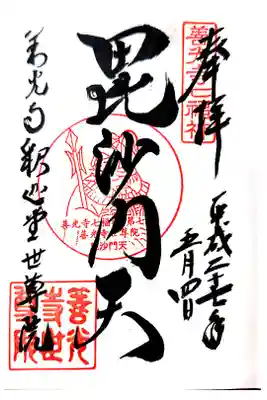 奉拝
平成二十七年
五月四日
毘沙門天
善光寺七福神
善光寺世尊院
毘沙門天
善光寺釈迦堂世尊院
善光
寺世
尊院